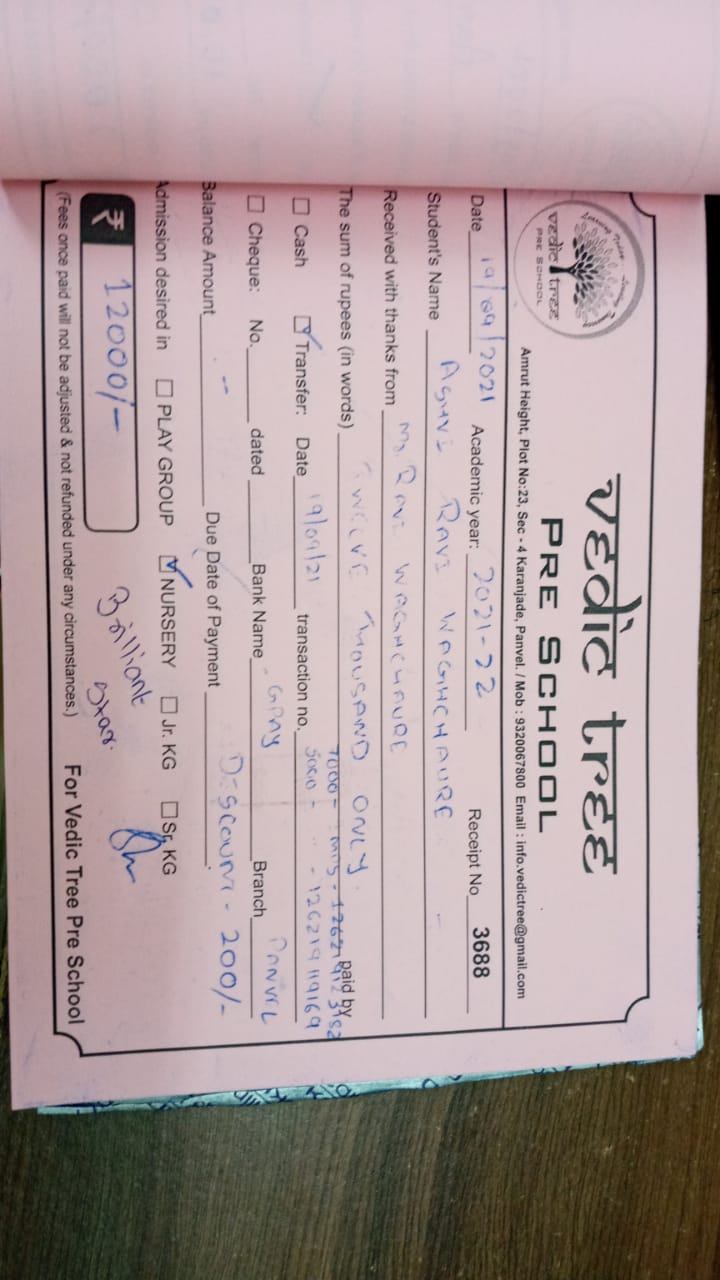 vedic tree
PRE SCHOOL
vedic tree
PRE SCHOOL
Amrut Height, Plot No:23, Sec - 4 Karanjade, Panvel. / Mob : 9320067800 Email : info.vedictree@gmail.com
Date 19/09/2021 Academic year: 2021-22 Receipt No 3688
Student's Name AGHVI RAVI WAGHCHAURE
Received with thanks from Mr. RAVI WAGHCHAURE
The sum of rupees (in words) TWELVE THOUSAND ONLY. paid by
7000 -
☐ Cash ☑ Transfer: Date 19/09/21 transaction no. 5000 - " - 126219119169
☐ Cheque: No. dated Bank Name GPay Branch PANVEL
Balance Amount -- Due Date of Payment Discount - 200/-
Admission desired in ☐ PLAY GROUP ☑ NURSERY ☐ Jr. KG ☐ Sr. KG
₹ 12000/- Brilliant Star.
(Fees once paid will not be adjusted & not refunded under any circumstances.) For Vedic Tree Pre School